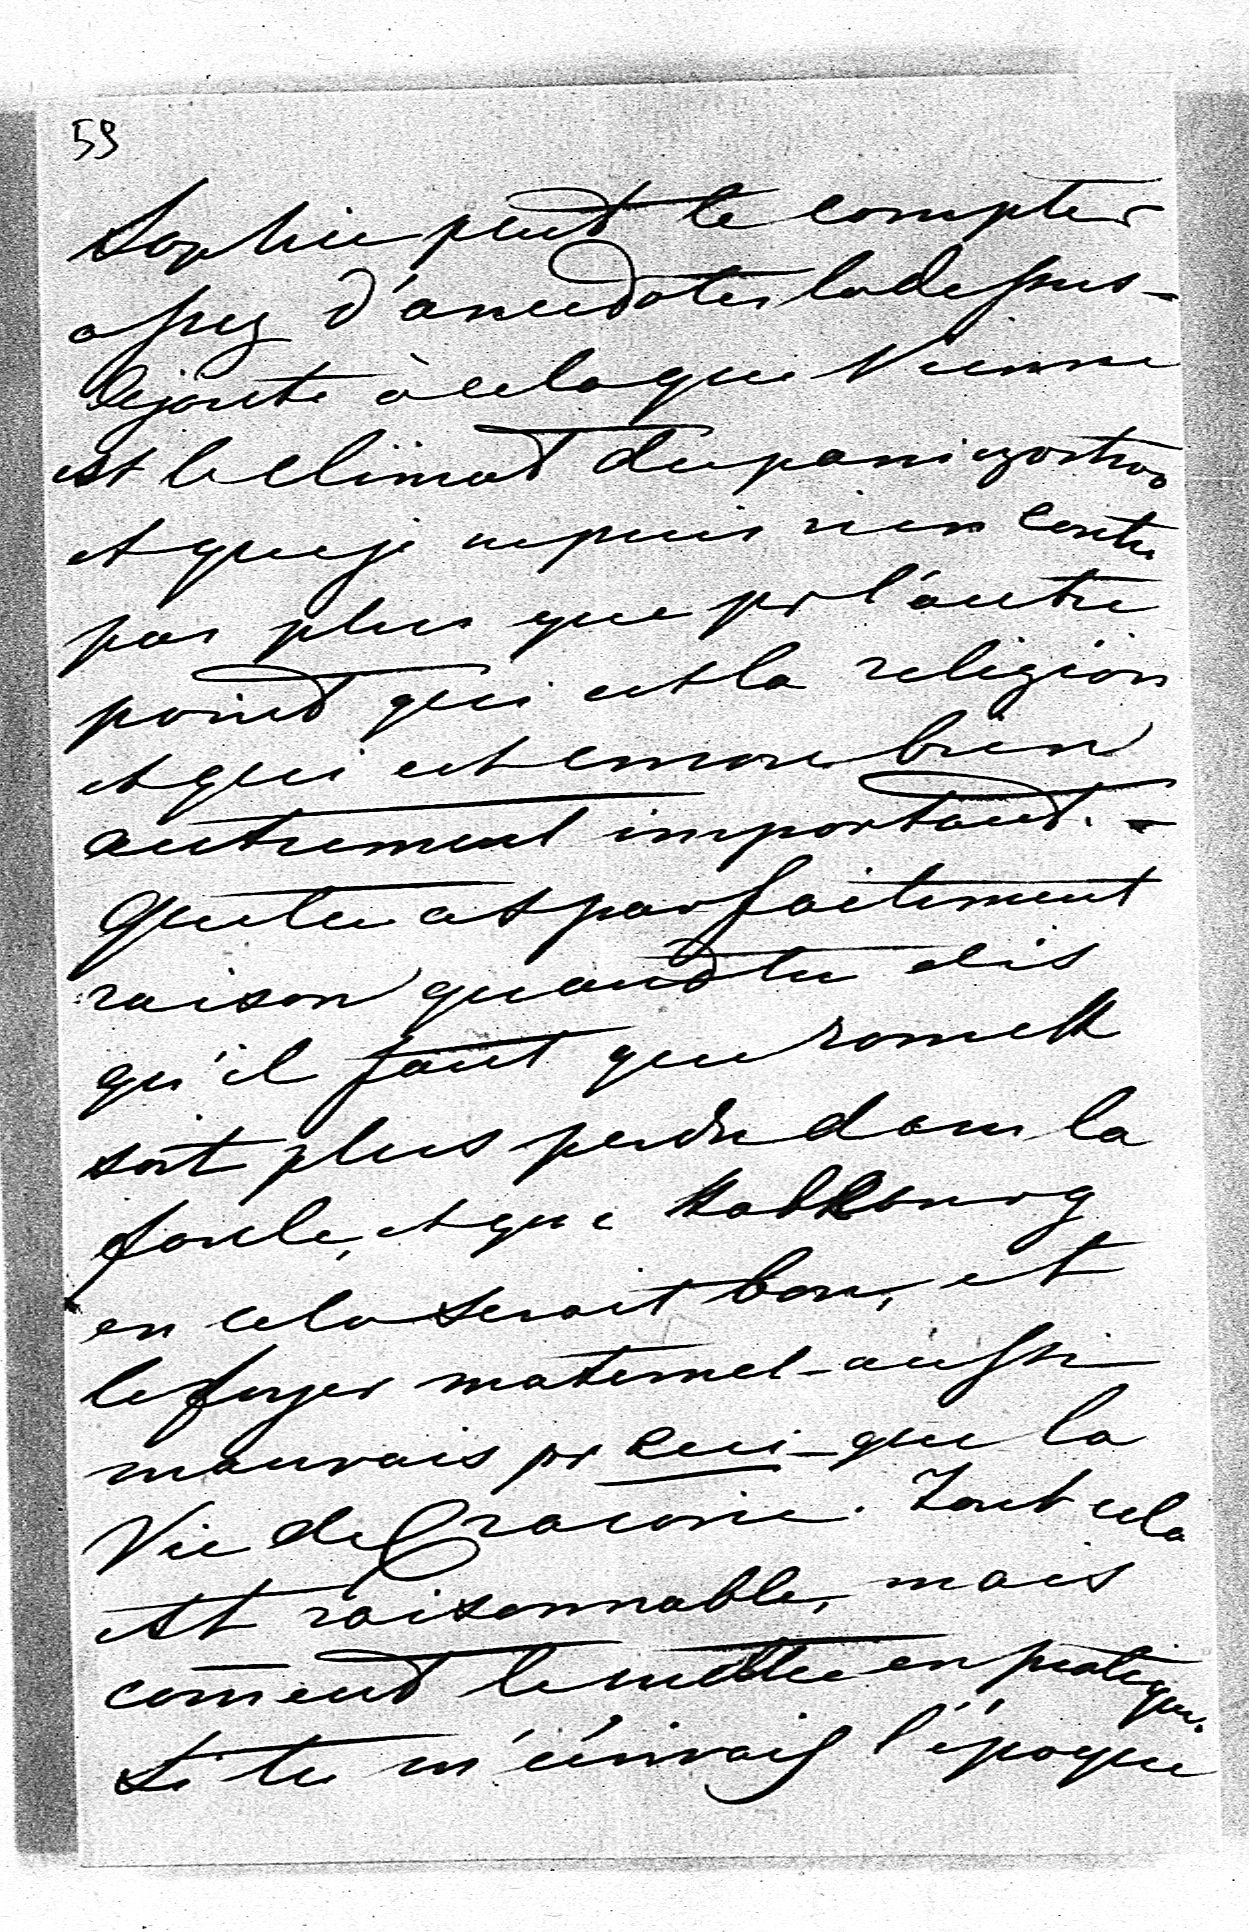 59
Sophie peut te compter
assez d'anecdotes ladessus -
Ajoute à cela que Vienne
est le climat du
et que je ne puis rien contre
pas plus que pr l'autre
point qui est la religion
et qui est encore bien
autrement important. -
Que tu as parfaitement
raison quand tu dis
qu'il faut que
soit plus perdu dans la
foule, et que Kalksbourg
en cela serait bon, et
le foyer maternel - aussi
mauvais pr lui - que la
Vie de Cracovie. Tout cela
est raisonnable, mais
com̄ent le mettre en pratique.
Si tu m'écrivais l'époque